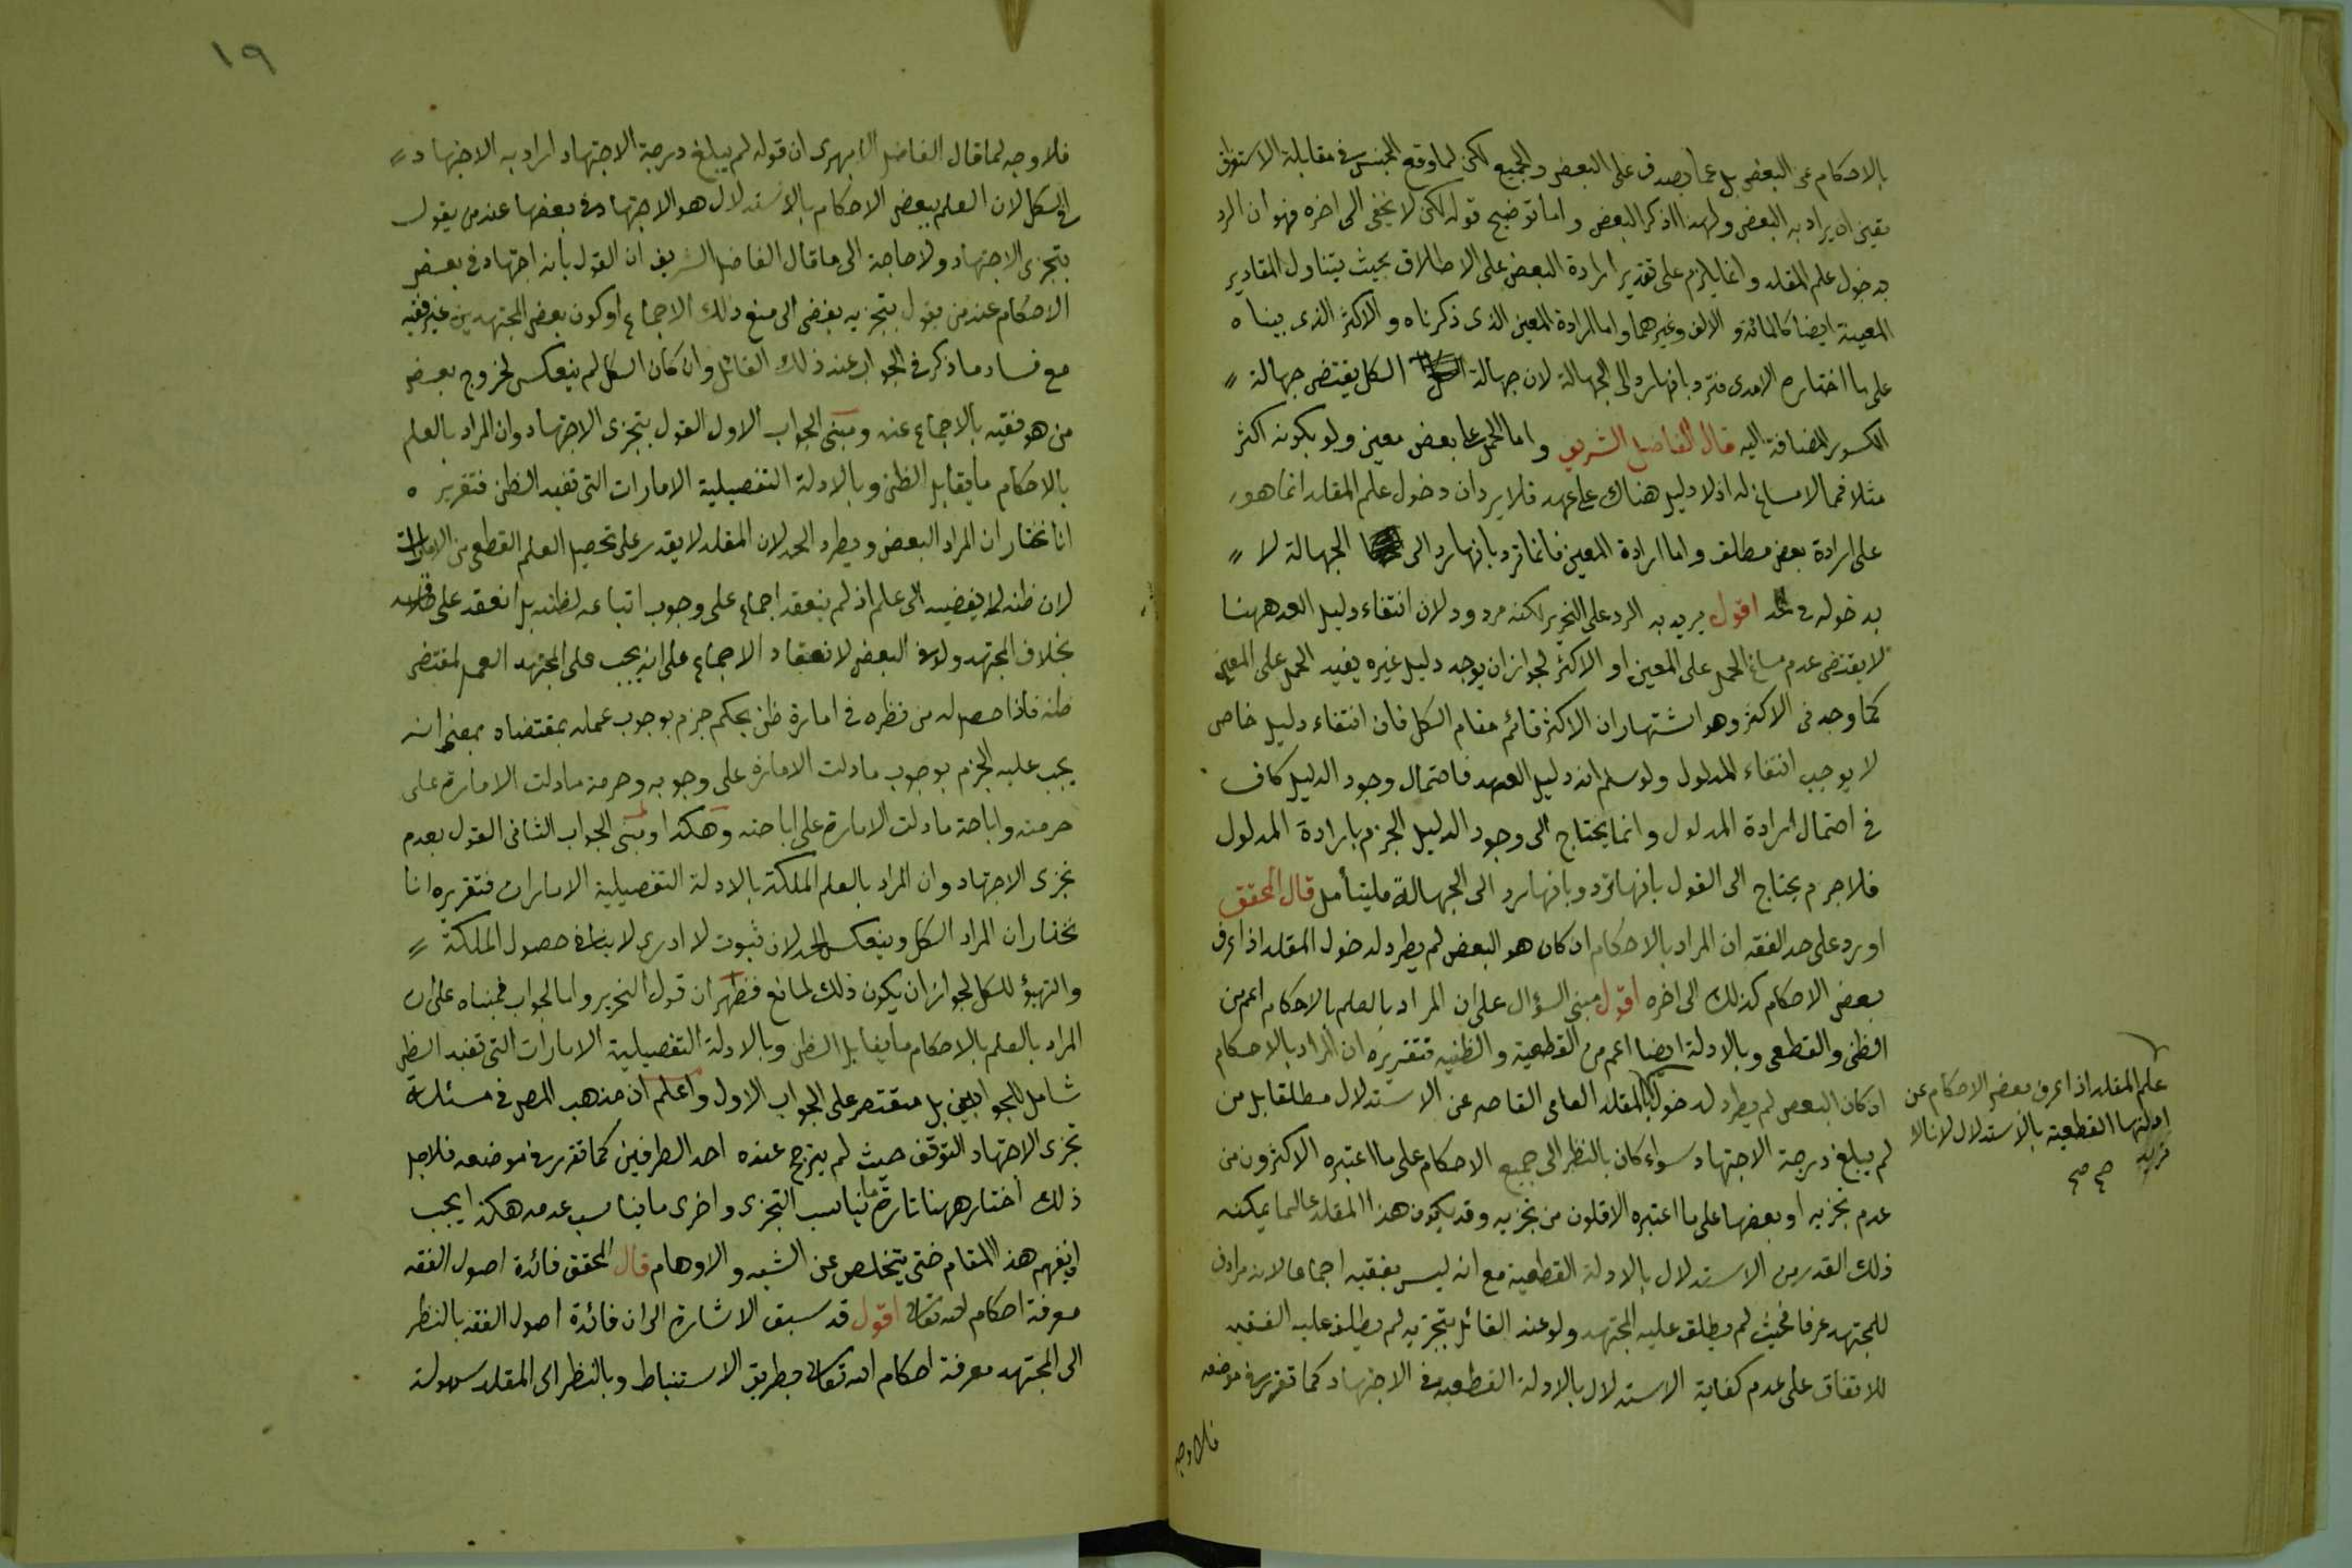 بالاحكام عن البعض بل عما يصدق على البعض والجميع لكن لما وقع الجنس في مقابلة الاستغراق
تعين ان يراد به البعض ولهذا ذكر البعض واما توضيح قوله لكن لا يخفى الى اخره فهو ان الرد
بدخول علم المقلد وانما يلزم على تقدير ارادة البعض على الاطلاق بحيث يتناول المقادير
المعينة ايضا كالمائة والالف وغيرهما واما ارادة المعين الذى ذكرناه والاكثر الذى بيناه
على ما اختاره الامدى فترد بانها رد الى الجهالة لان جهالة الكل يقتضى جهالة
الكسور المضافة اليه قال الفاضل الشريف واما الحمل على بعض معين ولو بكونه اكثر
مثلا فمما لا مساغ له اذ لا دليل هناك على عهد فلا يرد ان دخول علم المقلد انما هو
على ارادة بعض مطلق واما ارادة المعين فانما ترد بانها رد الى الجهالة لا
بدخوله في الحد اقول يريد به الرد على النحرير لكنه مردود لان انتفاء دليل العهد ههنا
لا يقتضى عدم مساغ الحمل على المعين او الاكثر لجواز ان يوجد دليل غيره يفيد الحمل على المعين
كما وجد فى الاكثر وهو اشتهار ان الاكثر قائم مقام الكل فان انتفاء دليل خاص
لا يوجب انتفاء المدلول ولو سلم انه دليل العهد فاحتمال وجود الدليل كاف
في احتمال ارادة المدلول وانما يحتاج الى وجود الدليل الجزم بارادة المدلول
فلا جرم يحتاج الى القول بانها ترد وبانها رد الى الجهالة فليتأمل قال المحقق
اورد على حد الفقه ان المراد بالاحكام ان كان هو البعض لم يطرد لدخول المقلد اذا عرف
بعض الاحكام كذلك الى اخره اقول مبنى السؤال على ان المراد بالعلم بالاحكام اعم من
الظنى والقطعى وبالادلة ايضا اعم من القطعية والظنية فتقريره ان المراد بالاحكام
ان كان البعض لم يطرد لدخول المقلد العامى القاصر عن الاستدلال مطلقا بل من
لم يبلغ درجة الاجتهاد سواء كان بالنظر الى جميع الاحكام على ما اعتبره الاكثرون من
عدم تجزيه او بعضها على ما اعتبره الاقلون من تجزيه وقد يكون هذا المقلد عالما يمكنه
ذلك القدر من الاستدلال بالادلة القطعية مع انه ليس بفقيه اجماعا لانه مرادف
للمجتهد عرفا فحيث لم يطلق عليه المجتهد ولو عند القائل بتجزيه لم يطلق عليه الفقيه
للاتفاق على عدم كفاية الاستدلال بالادلة القطعية في الاجتهاد كما تقرر في موضعه
فلا وجه
علم المقلد اذا عرف بعض الاحكام عن
ادلتها القطعية بالاستدلال لانا لا
نريد
صح صح
١٩
فلا وجه لما قال الفاضل الابهرى ان قوله لم يبلغ درجة الاجتهاد اراد به الاجتهاد
في الكل لان العلم ببعض الاحكام بالاستدلال هو الاجتهاد في بعضها عند من يقول
بتجزى الاجتهاد ولا حاجة الى ما قال الفاضل الشريف ان القول بأنه اجتهاد في بعض
الاحكام عند من يقول بتجزيه يفضى الى منع ذلك الاجماع او كون بعض المجتهدين غير فقيه
مع فساد ما ذكر في الجواب عند ذلك القائل وان كان الكل لم ينعكس لخروج بعض
من هو فقيه بالاجماع عنه ومبنى الجواب الاول القول بتجزى الاجتهاد وان المراد بالعلم
بالاحكام ما يقابل الظن وبالادلة التفصيلية الامارات التى تفيد الظن فتقريره
انا نختار ان المراد البعض ويطرد الحد لان المقلد لا يقدر على تحصيل العلم القطعى من الامارات
لان ظنه لا يفضيه الى علم اذ لم ينعقد اجماع على وجوب اتباعه لظنه بل انعقد على خلافه
بخلاف المجتهد ولو في البعض لانعقاد الاجماع على انه يجب على المجتهد العمل بمقتضى
ظنه فاذا حصل له من نظره في امارة ظن بحكم جزم بوجوب عمله بمقتضاه بمعنى انه
يجب عليه الجزم بوجوب ما دلت الامارة على وجوبه وحرمة ما دلت الامارة على
حرمته واباحة ما دلت الامارة على اباحته وهكذا ومبنى الجواب الثانى القول بعدم
تجزى الاجتهاد وان المراد بالعلم الملكة بالادلة التفصيلية الامارات فتقريره انا
نختار ان المراد الكل وينعكس الحد لان ثبوت لا ادرى لا ينافي حصول الملكة
والتهيؤ للكل لجواز ان يكون ذلك لمانع فظهر ان قول النحرير واما الجواب فمبناه على ان
المراد بالعلم بالاحكام ما يقابل الظن وبالادلة التفصيلية الامارات التى تفيد الظن
شامل للجوابين بل مقتصر على الجواب الاول واعلم ان مذهب المص في مسئلة
تجزى الاجتهاد التوقف حيث لم يترجح عنده احد الطرفين كما تقرر في موضعه فلاجل
ذلك اختار ههنا تارة ما يناسب التجزى واخرى ما يناسب عدمه هكذا يجب
ان يفهم هذا المقام حتى يتخلص عن الشبه والاوهام قال المحقق فائدة اصول الفقه
معرفة احكام الله تعالى اقول قد سبق الاشارة الى ان فائدة اصول الفقه بالنظر
الى المجتهد معرفة احكام الله تعالى بطريق الاستنباط وبالنظر الى المقلد سهولة